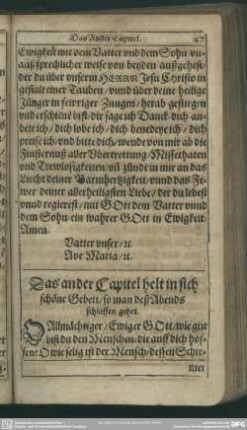 Das Ander Capittel. 47
Ewigkeit mit dem Vatter vnd dem Sohn vn-
außsprechlicher weise von beyden außgehest/
der du über vnserm HERRN Jesu Christo in
gestalt einer Tauben / vnnd über deine heilige
Jünger in fewriger Zungen / herab gestiegen
vnd erschienē bist / dir sage ich Danck dich an-
bete ich / dich lobe ich / dich benedeye ich / dich
preise ich / vnd bitte dich / wende von mir ab die
Finsternuß aller Vbertrettung / Missethaten
vnd Trewlosigkeiten / vñ zünde in mir an das
Liecht deiner Barmhertzigkeit / vnnd das Fe-
wer deiner allerheiligsten Liebe / der du lebest
vnnd regierest / mit GOtt dem Vatter vnnd
dem Sohn ein wahrer GOtt in Ewigkeit
Amen.
Vatter vnser / ꝛc.
Ave Maria / ꝛc.
Das ander Capitel helt in sich
schöne Gebett / so man deß Abends
schlaffen gehet.
O Allmächtiger / Ewiger GOtt / wie gut
bist du den Menschen / die auff dich hof-
fen: O wie selig ist der Mensch / dessen Schir-
mer